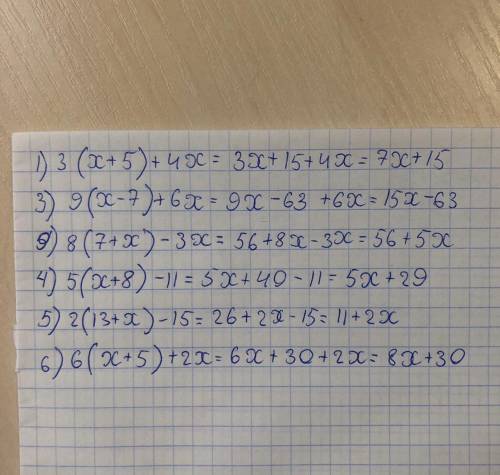 1) 3(x+5)+4x= 3x+15+4x=7x+15
3) 9(x-7)+6x=9x-63 +6x=15x-63
9) 8(7+x)-3x=56+8x-3x=56+5x
4) 5(x+8)-11=5x+40-11=5x+29
5) 2(13+x)-15=26+2x-15=11+2x
6) 6(x+5)+2x=6x+30+2x=8x+30